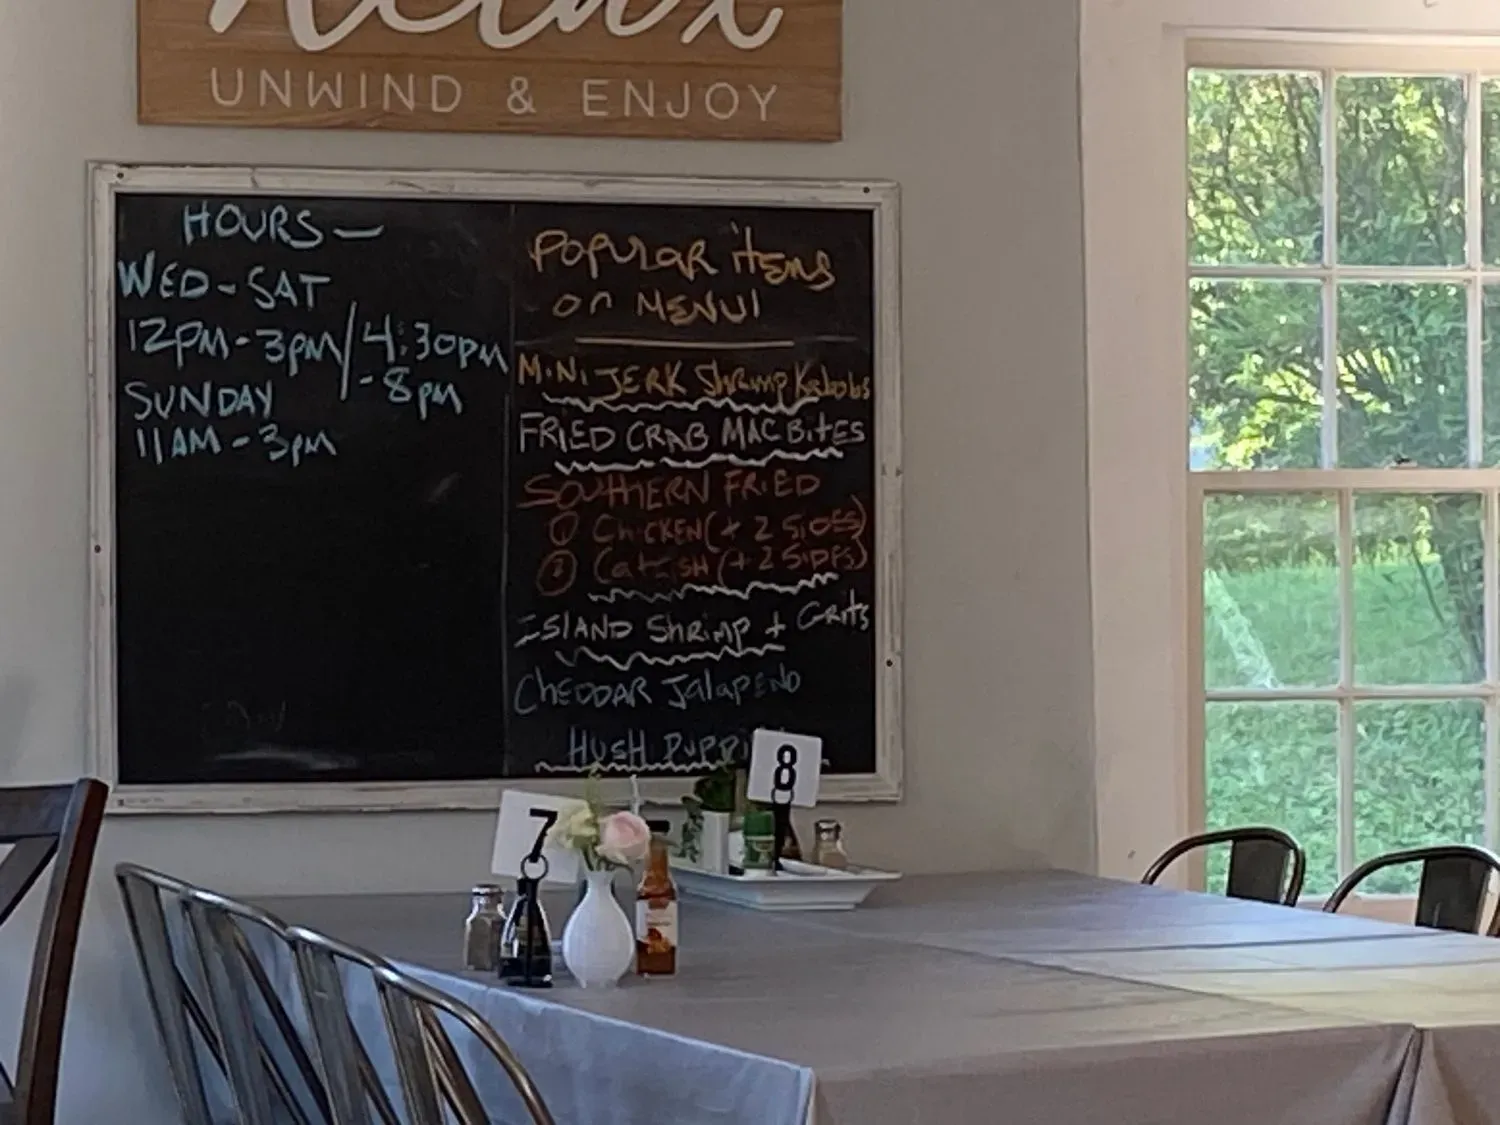 Relax
UNWIND & ENJOY
HOURS —
WED - SAT
12PM - 3PM / 4:30PM
- 8PM
SUNDAY
11AM - 3PM
POPULAR iTEMS
on MENU!
MiNi JERK Shrimp Kabobs
FRiED CRAB MAC BiTES
SOUTHERN FRiED
① ChiCKEN (+ 2 SiDES)
② CatfiSH (+ 2 SiDES)
ISLAND Shrimp + Grits
CHEDDAR JalaPENO
HUSH
8
7